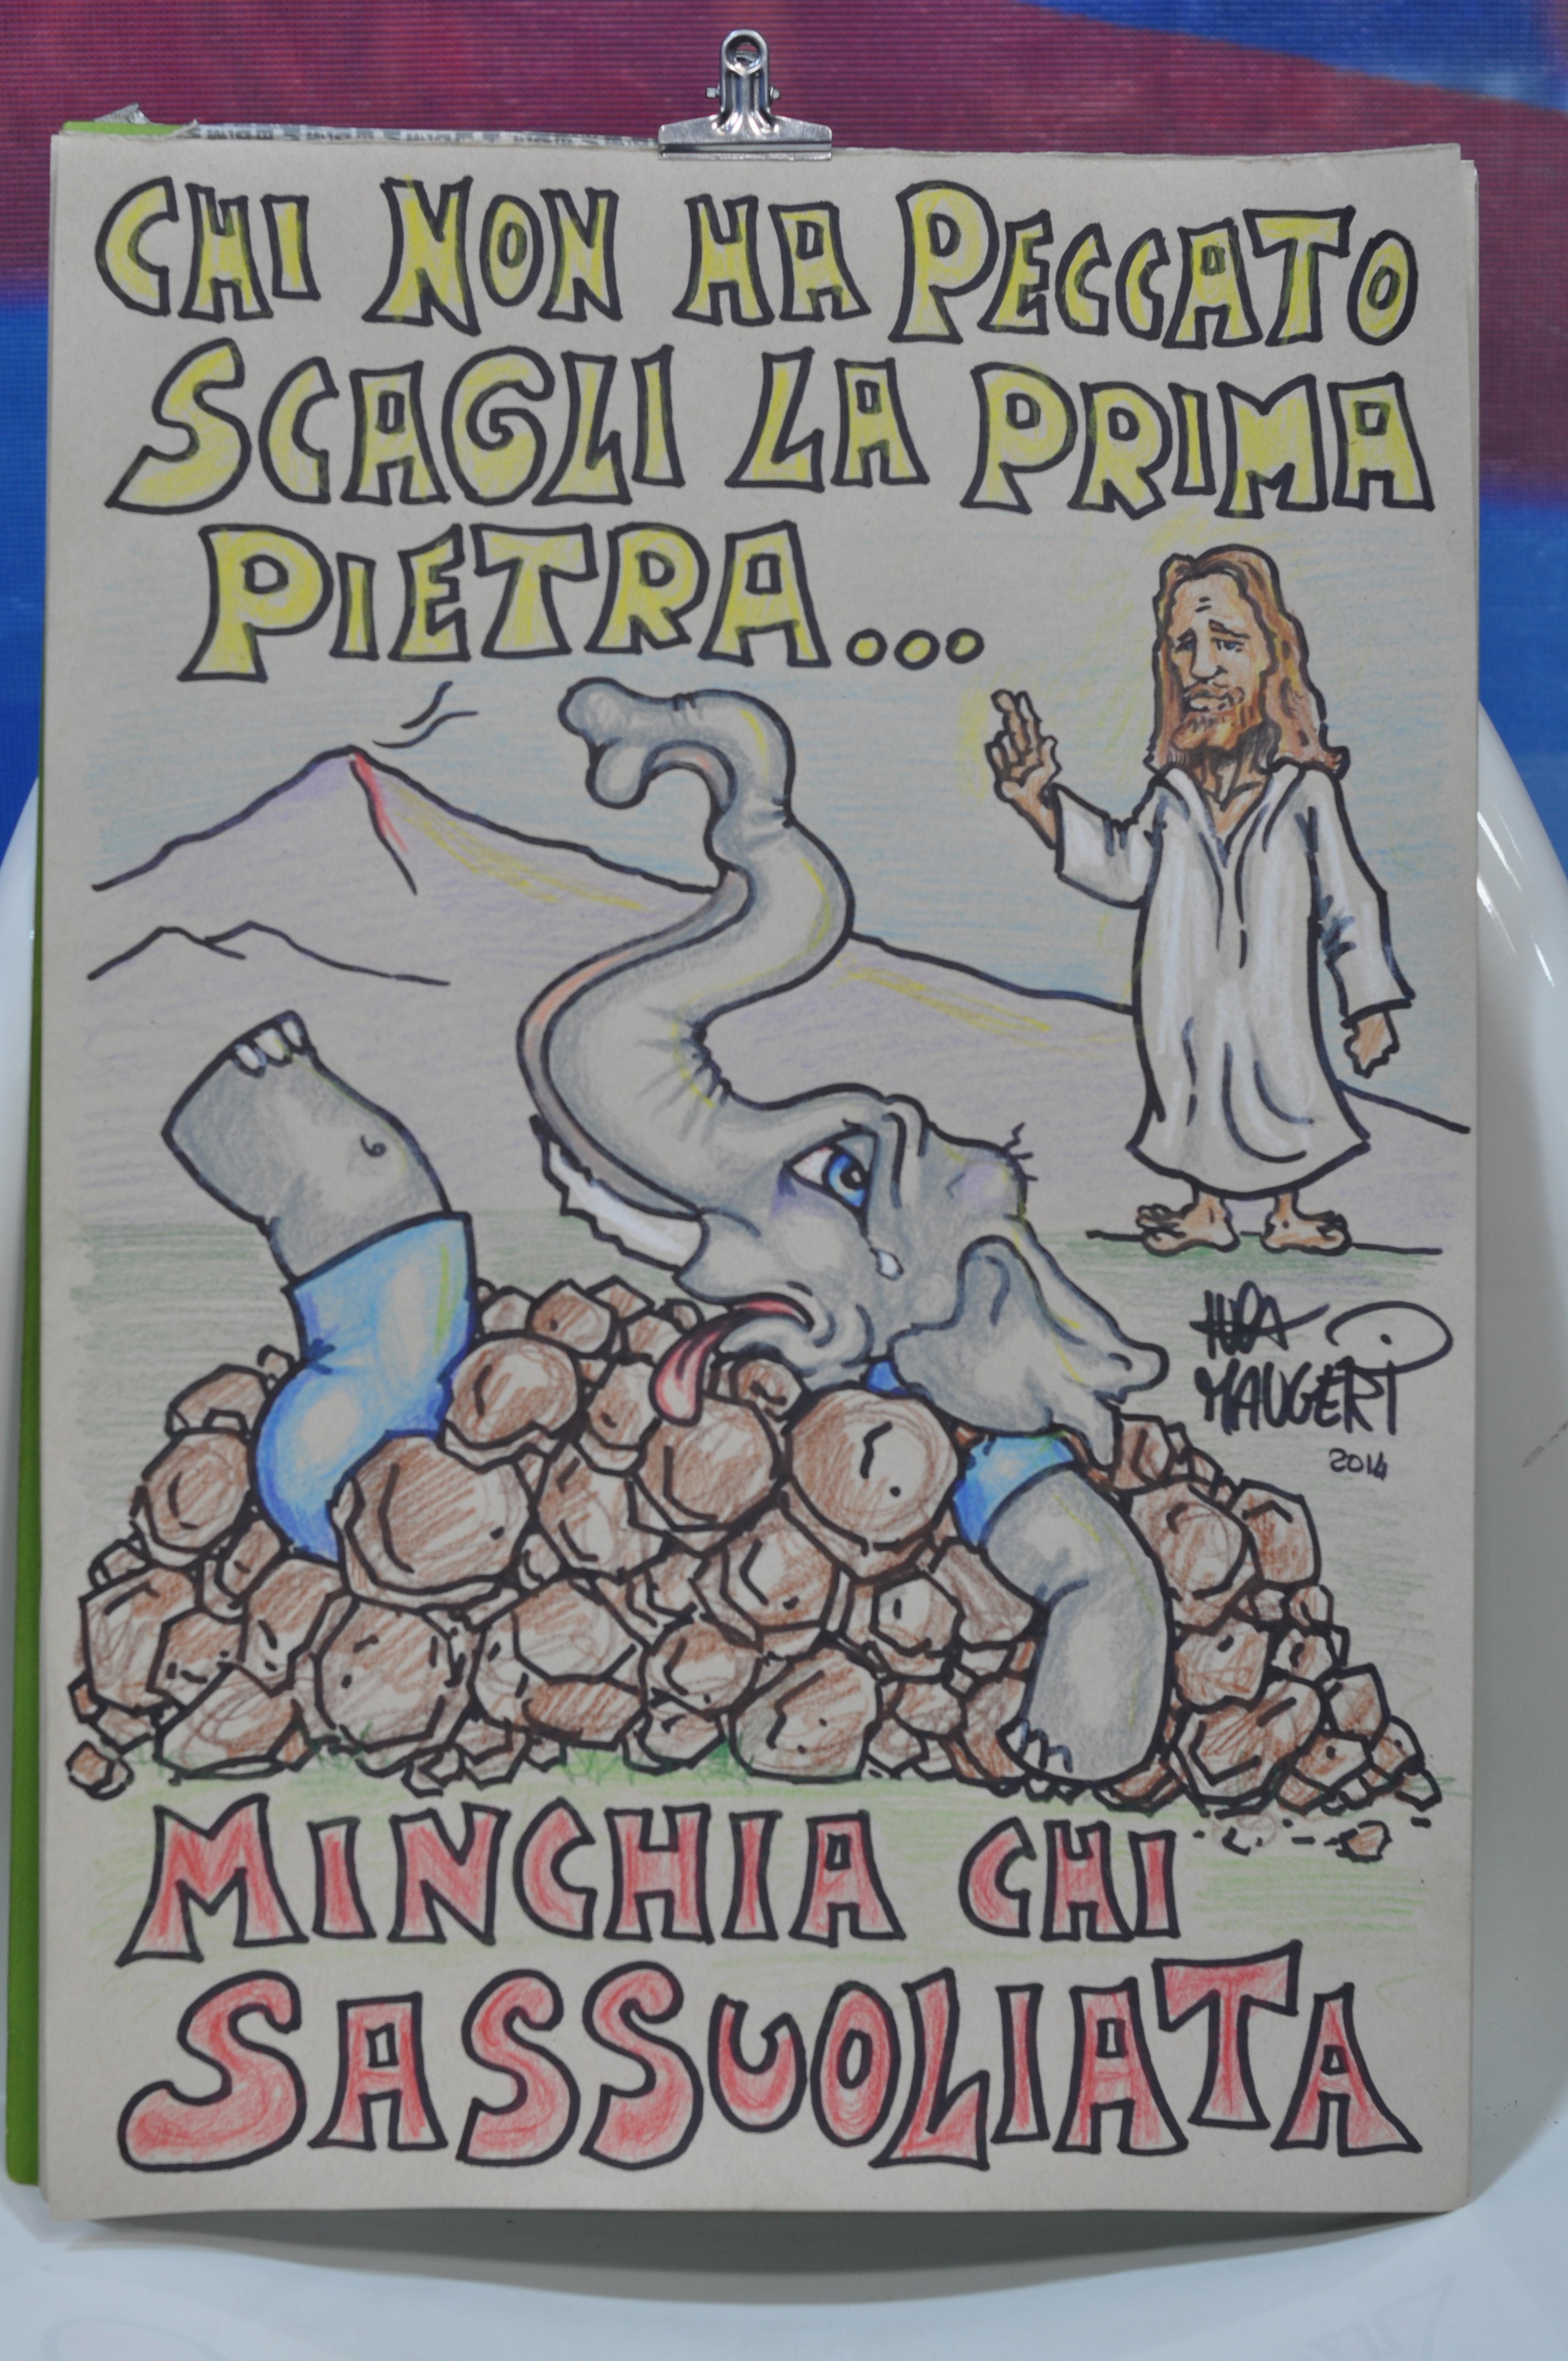 CHI NON HA PECCATO
SCAGLI LA PRIMA
PIETRA...
MAUGERI
2014
MINCHIA CHI
SASSUOLIATA